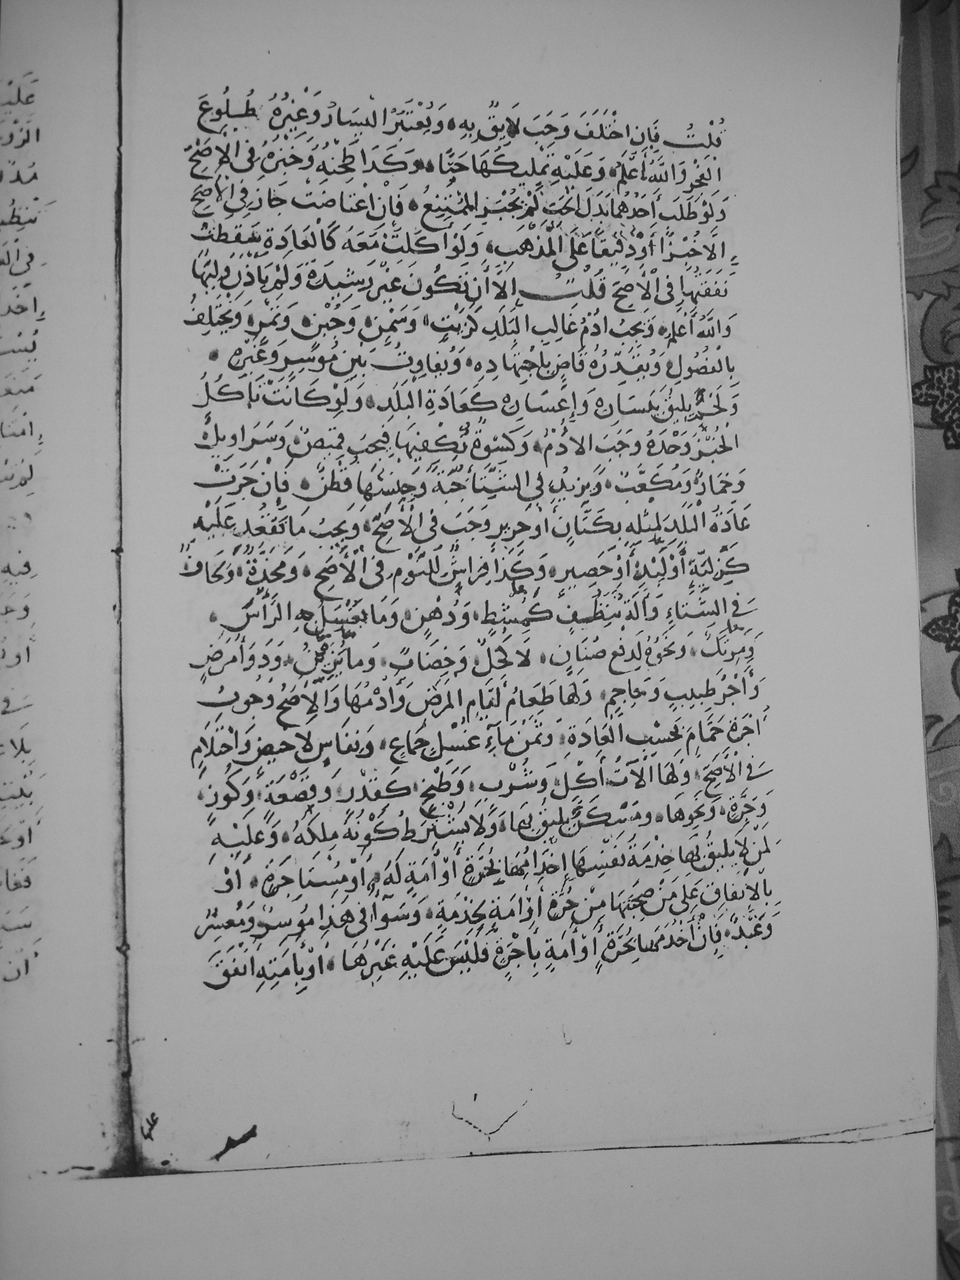 قُلْتُ فَإِنِ اخْتَلَفَ وَجَبَ لَايِقٌ بِهِ وَيُعْتَبَرُ الْيَسَارُ وَغَيْرُهُ طُلُوعَ
الْفَجْرِ وَاللَّهُ أَعْلَمُ وَعَلَيْهِ تَمْلِيكُهَا حَبًّا وَكَذَا طَحْنُهُ وَخَبْزُهُ فِي الْأَصَحِّ
وَلَوْ طَلَبَ أَحَدُهُمَا بَدَلَ الْحَبِّ لَمْ يُجْبَرِ الْمُمْتَنِعُ فَإِنِ اعْتَاضَتْ جَازَ فِي الْأَصَحِّ
إِلَّا خُبْزًا أَوْ دَقِيقًا عَلَى الْمَذْهَبِ وَلَوْ أَكَلَتْ مَعَهُ كَالْعَادَةِ سَقَطَتْ
نَفَقَتُهَا فِي الْأَصَحِّ قُلْتُ إِلَّا أَنْ تَكُونَ غَيْرَ رَشِيدَةٍ وَلَمْ يَأْذَنْ وَلِيُّهَا
وَاللَّهُ أَعْلَمُ وَيَجِبُ أُدْمُ غَالِبِ الْبَلَدِ كَزَيْتٍ وَسَمْنٍ وَجُبْنٍ وَتَمْرٍ وَيَخْتَلِفُ
بِالْفُصُولِ وَيُقَدِّرُهُ قَاضٍ بِاجْتِهَادِهِ وَيُفَاوِتُ بَيْنَ مُوسِرٍ وَغَيْرِهِ
وَلَحْمٌ يَلِيقُ بِيَسَارِهِ وَإِعْسَارِهِ كَعَادَةِ الْبَلَدِ وَلَوْ كَانَتْ تَأْكُلُ
الْخُبْزَ وَحْدَهُ وَجَبَ الْأُدْمُ وَكِسْوَةٌ تَكْفِيهَا فَيَجِبُ قَمِيصٌ وَسَرَاوِيلُ
وَخِمَارٌ وَمُكَعَّبٌ وَيَزِيدُ فِي الشِّتَاءِ جُبَّةً وَجِنْسُهَا قُطْنٌ فَإِنْ جَرَتْ
عَادَةُ الْبَلَدِ لِمِثْلِهِ بِكَتَّانٍ أَوْ حَرِيرٍ وَجَبَ فِي الْأَصَحِّ وَيَجِبُ مَا تَقْعُدُ عَلَيْهِ
كَزِلِّيَّةٍ أَوْ لِبْدٍ أَوْ حَصِيرٍ وَكَذَا فِرَاشٌ لِلنَّوْمِ فِي الْأَصَحِّ وَمِخَدَّةٌ وَلِحَافٌ
فِي الشِّتَاءِ وَآلَةُ تَنْظِيفٍ كَمُشْطٍ وَدُهْنٍ وَمَا يَغْسِلُ بِهِ الرَّأْسَ
وَمَرْتَكٌ وَنَحْوُهُ لِدَفْعِ صُنَانٍ لَا كُحْلٌ وَخِضَابٌ وَمَا يُزَيِّنُ وَدَوَاءُ مَرَضٍ
وَأَجْرُ طَبِيبٍ وَحَاجِمٍ وَلَهَا طَعَامُ أَيَّامِ الْمَرَضِ وَأُدْمُهَا وَالْأَصَحُّ وُجُوبُ
أُجْرَةِ حَمَّامٍ بِحَسَبِ الْعَادَةِ وَثَمَنِ مَاءِ غُسْلِ جِمَاعٍ وَنِفَاسٍ لَا حَيْضٍ وَاحْتِلَامٍ
فِي الْأَصَحِّ وَلَهَا آلَاتُ أَكْلٍ وَشُرْبٍ وَطَبْخٍ كَقِدْرٍ وَقَصْعَةٍ وَكُوزٍ
وَجَرَّةٍ وَنَحْوِهَا وَمَسْكَنٌ يَلِيقُ بِهَا وَلَا يُشْتَرَطُ كَوْنُهُ مِلْكَهُ وَعَلَيْهِ
لِمَنْ لَا يَلِيقُ بِهَا خِدْمَةُ نَفْسِهَا إِخْدَامُهَا بِحُرَّةٍ أَوْ أَمَةٍ لَهُ أَوْ مُسْتَأْجَرَةٍ أَوْ
بِالْإِنْفَاقِ عَلَى مَنْ صَحِبَتْهَا مِنْ حُرَّةٍ أَوْ أَمَةٍ لِخِدْمَةٍ وَسَوَاءٌ فِي هَذَا مُوسِرٌ وَمُعْسِرٌ
وَعَبْدٌ فَإِنْ أَخْدَمَهَا بِحُرَّةٍ أَوْ أَمَةٍ بِأُجْرَةٍ فَلَيْسَ عَلَيْهِ غَيْرُهَا أَوْ بِأَمَتِهِ أَنْفَقَ